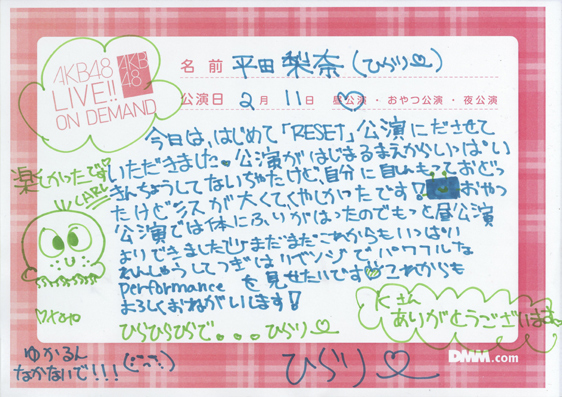 AKB48
LIVE!!
ON DEMAND
AKB
48
名前 平田梨奈(ひらり)
公演日 2月11日 昼公演・おやつ公演・夜公演
今日は、はじめて「RESET」公演にださせて
いただきました。公演がはじまるまえからいっぱい
きんちょうしてないちゃたけど、自分に自しんもっておどっ
たけどミスが大くてくやしかったです! おやつ
公演では体にふりがはいったのでもっと昼公演
よりできましたでもまだまだこれからもいっぱい
れんしゅうしてつぎはリベンジでパワフルな
performance を見せたいです これからも
よろしくおねがいします!
ひらひらひらで...ひらり
楽しかったです
CARL
Kさん
ありがとうございます。
ゆかるん
なかないで!!!
ひらり
DMM.com